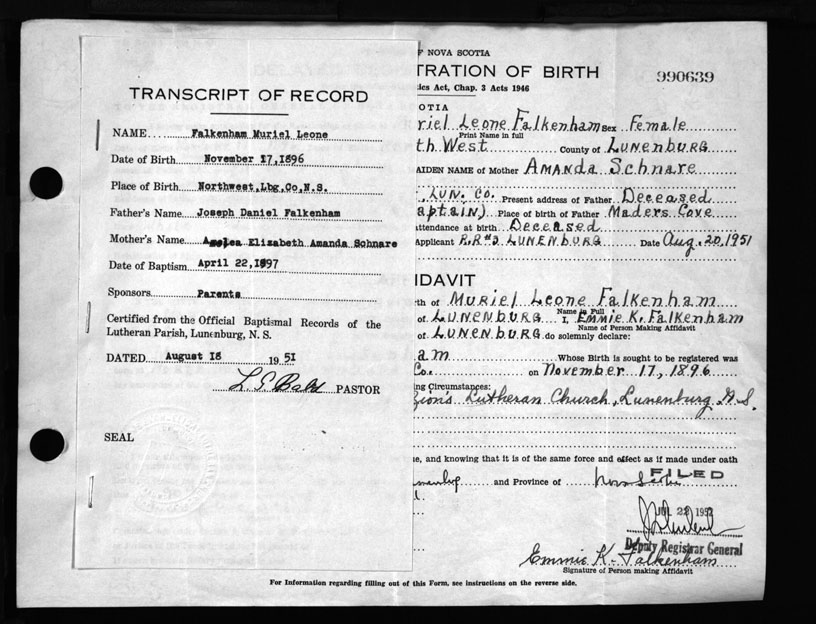 TRANSCRIPT OF RECORD
NAME Falkenham Muriel Leone
Date of Birth November 17,1896
Place of Birth Northwest,Lbg,Co,N.S.
Father's Name Joseph Daniel Falkenham
Mother's Name Elizabeth Amanda Schnare
Date of Baptism April 22,1897
Sponsors Parents
Certified from the Official Baptismal Records of the
Lutheran Parish, Lunenburg, N. S.
DATED August 18 1951
L. E. Bald PASTOR
SEAL
F NOVA SCOTIA
TRATION OF BIRTH
990639
ies Act, Chap. 3 Acts 1946
COTIA
riel Leone Falkenham Sex Female
Print Name in full
th West County of LUNENBURG
AIDEN NAME of Mother AMANDA Schnare
LUN. Co. Present address of Father Deceased
aptain) Place of birth of Father Maders Cove
ttendance at birth Deceased
Applicant R.R#2 LUNENBURG Date Aug. 20, 1951
IDAVIT
rth of MURIEL Leone Falkenham
Name in Full
of LUNENBURG I, EMMIE K. FALKENHAM
Name of Person Making Affidavit
of LUNENBURG do solemnly declare:
am Whose Birth is sought to be registered was
Co. on November 17, 1896
ing Circumstances:
Zion's Lutheran Church, Lunenburg N.S.
ue, and knowing that it is of the same force and effect as if made under oath
and Province of Nova Scotia
FILED
Deputy Registrar General
Emmie K. Falkenham
Signature of Person making Affidavit
For Information regarding filling out of this Form, see instructions on the reverse side.